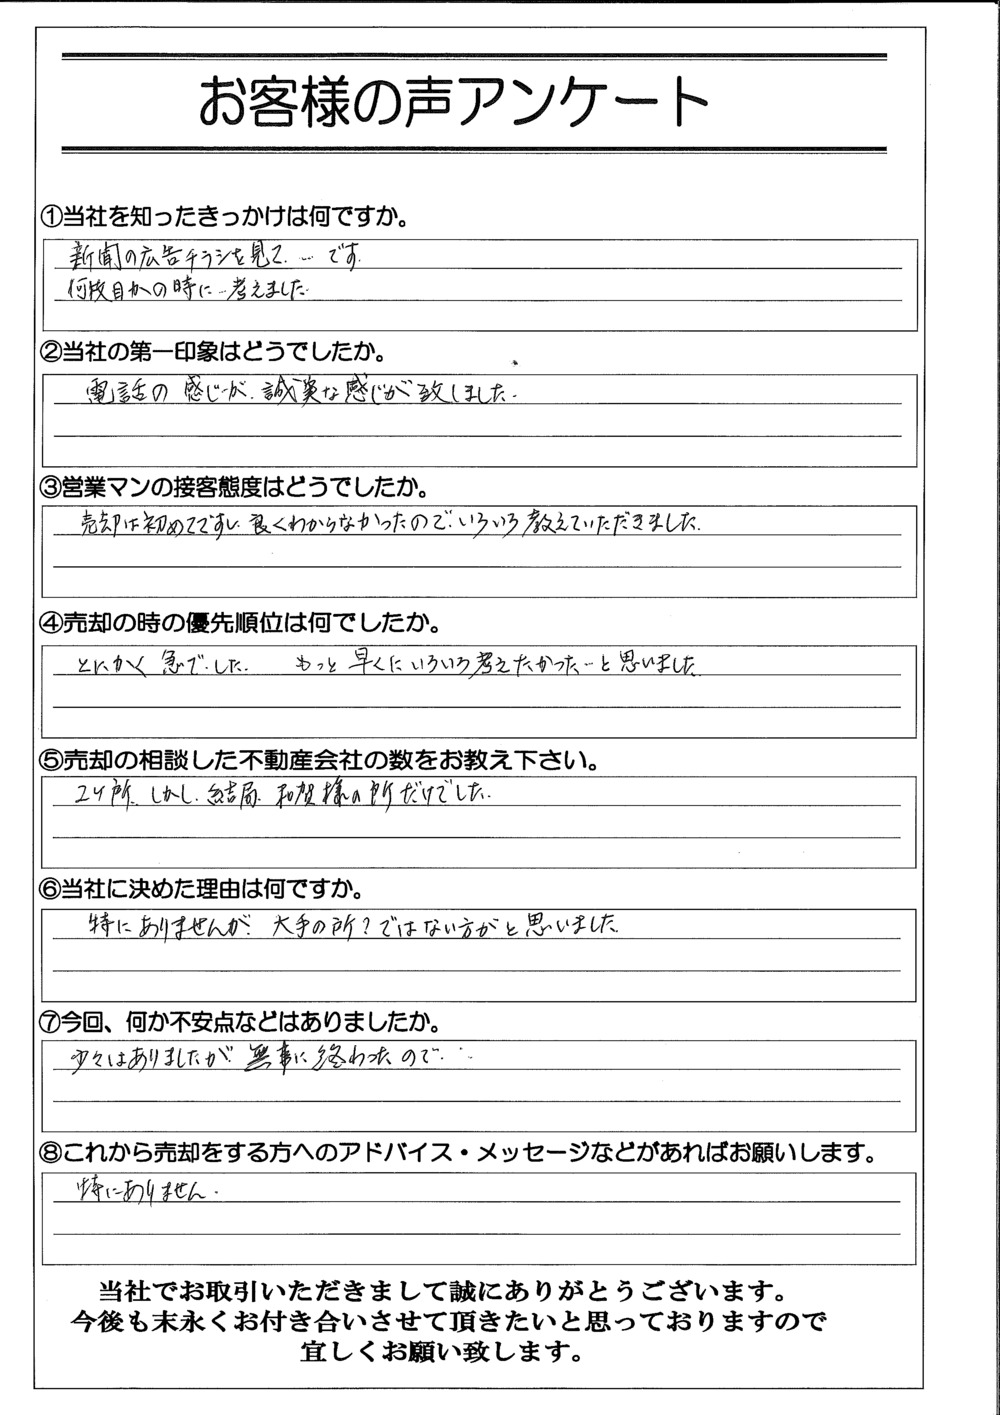 お客様の声アンケート
①当社を知ったきっかけは何ですか。
新聞の広告チラシを見て…です
何枚目かの時に…考えました
②当社の第一印象はどうでしたか。
電話の感じが、誠実な感じが致しました。
③営業マンの接客態度はどうでしたか。
売却は初めてですし、良くわからなかったので、いろいろ教えていただきました。
④売却の時の優先順位は何でしたか。
とにかく急でした。 もっと早くにいろいろ考えたかった…と思いました。
⑤売却の相談した不動産会社の数をお教え下さい。
2ケ所、しかし、結局、和賀様の所だけでした。
⑥当社に決めた理由は何ですか。
特にありませんが、大手の所?ではない方がと思いました。
⑦今回、何か不安点などはありましたか。
少々はありましたが、無事に終わったので…
⑧これから売却をする方へのアドバイス・メッセージなどがあればお願いします。
特にありません。
当社でお取引いただきまして誠にありがとうございます。
今後も末永くお付き合いさせて頂きたいと思っておりますので
宜しくお願い致します。